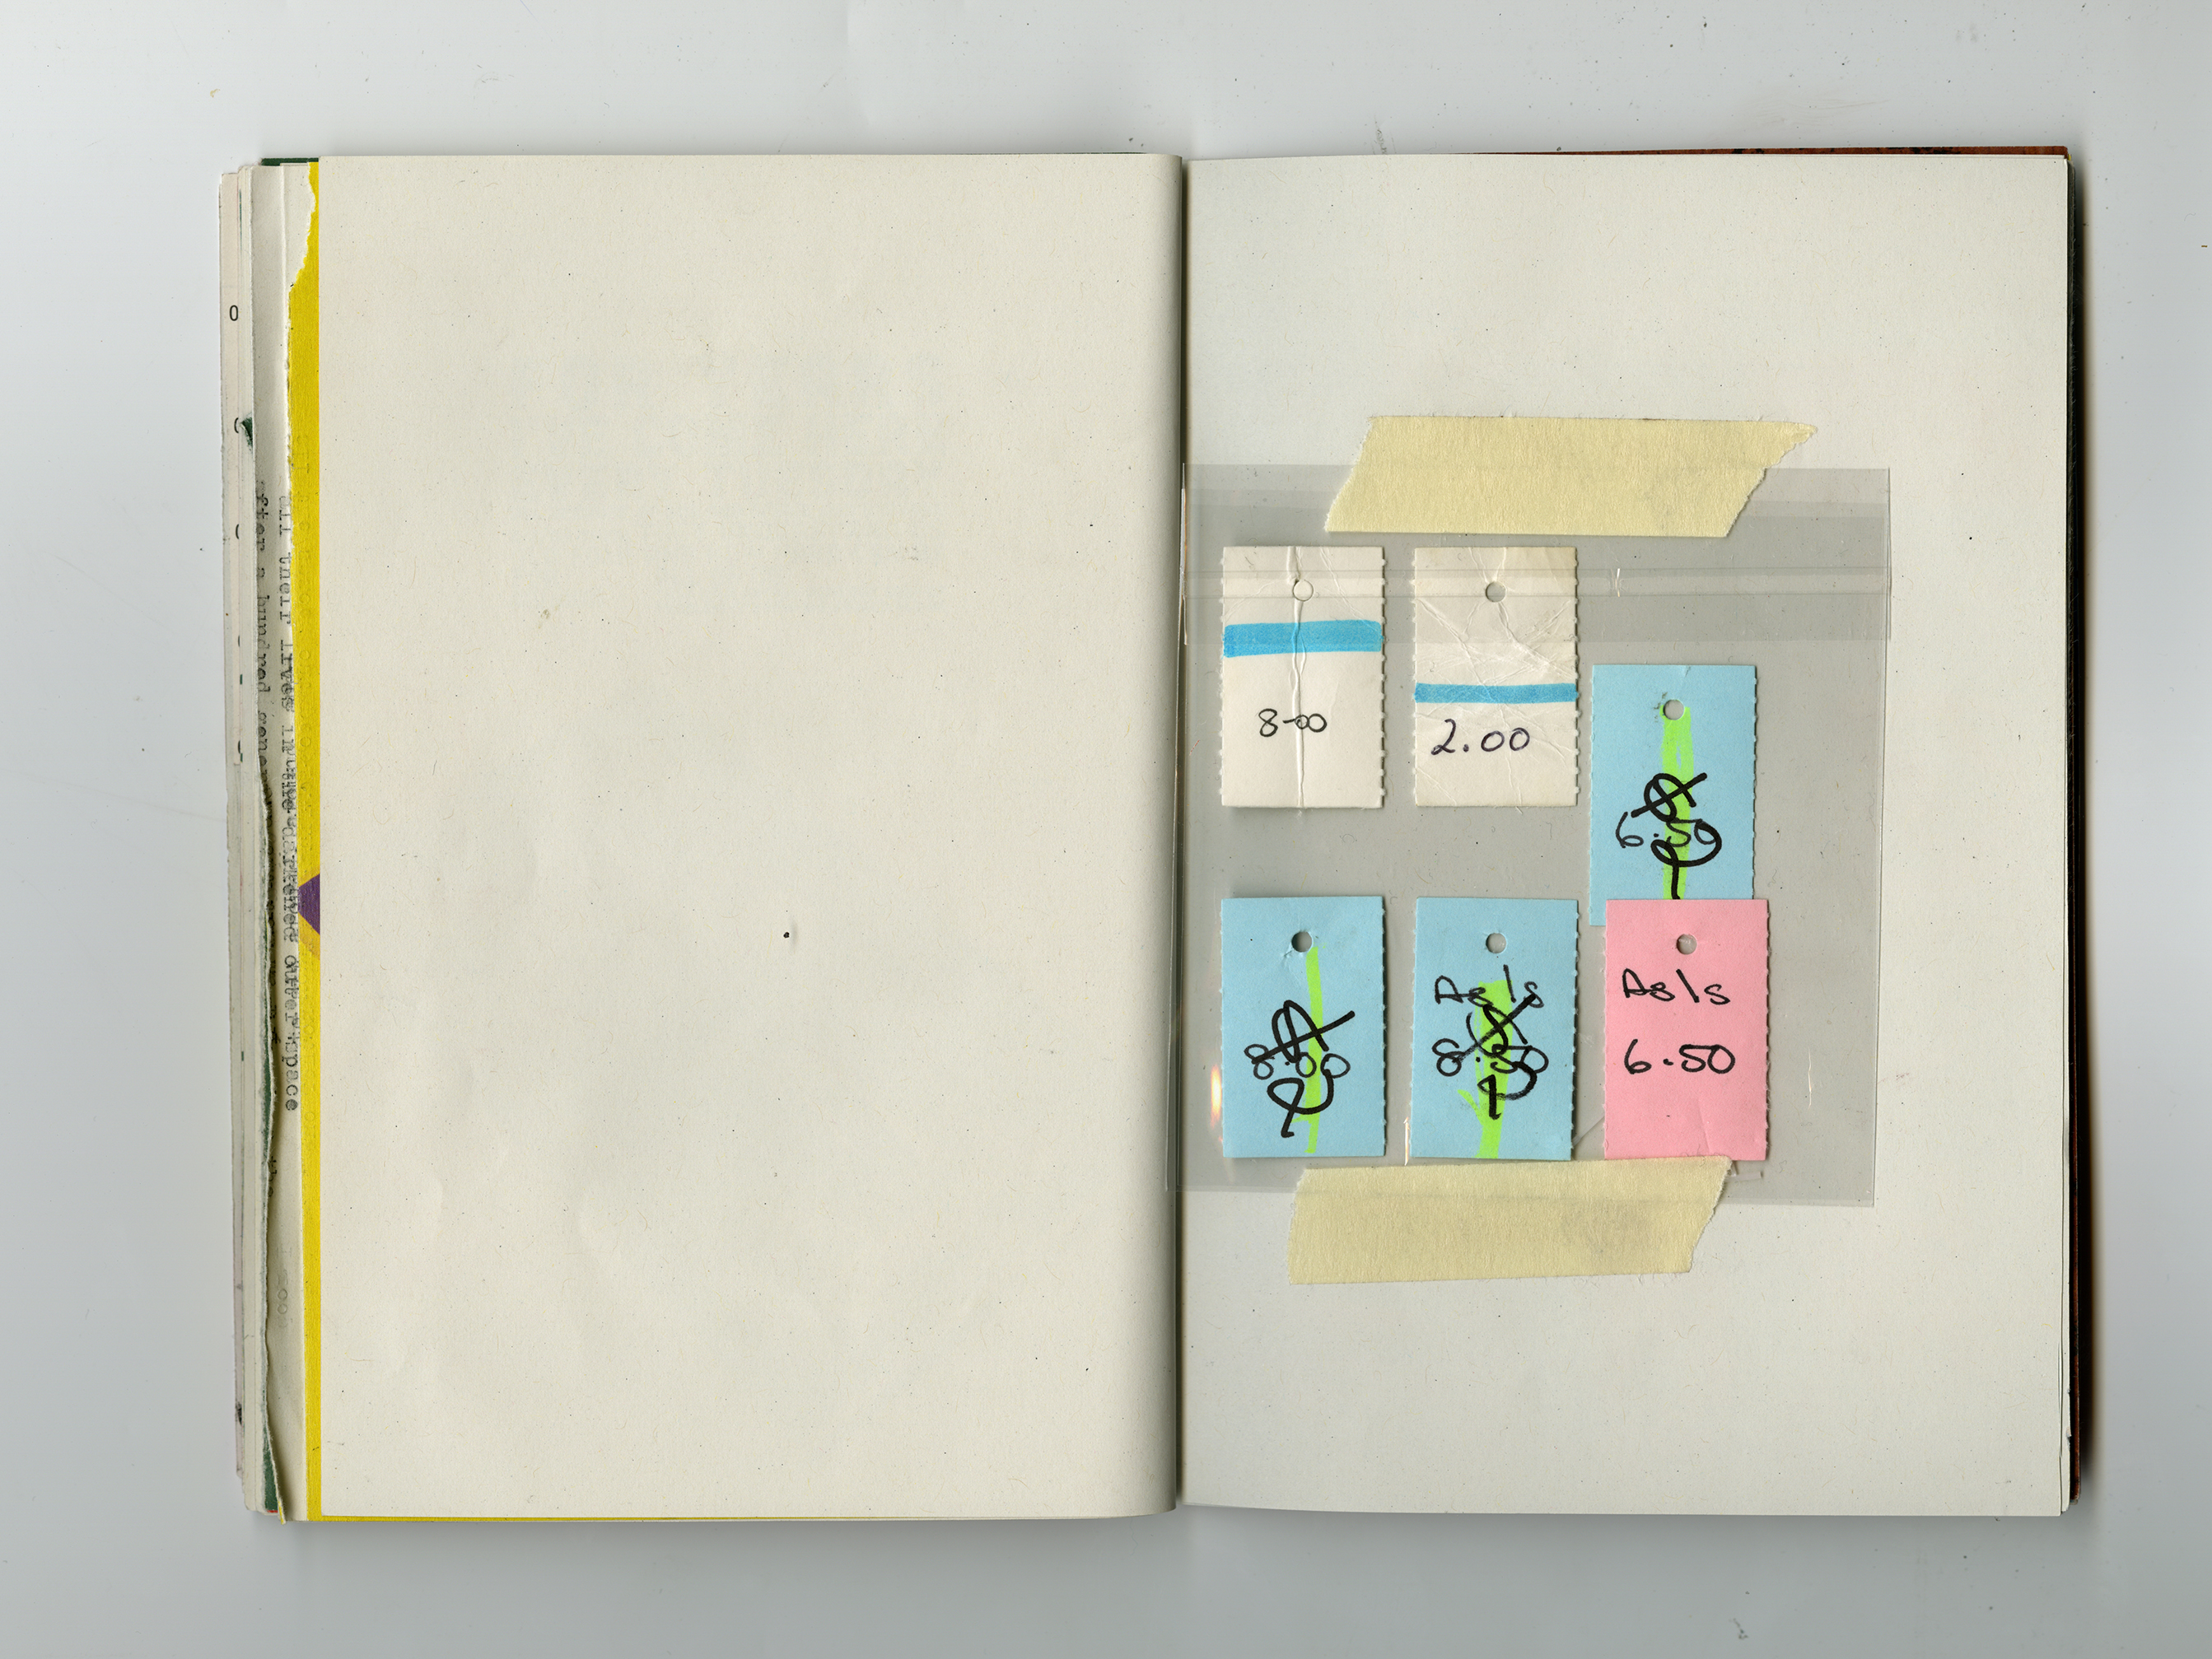 O
all their lives in the darkened outer space
after a hundred
8-00
2.00
6.50
8.00
As Is
8.50
As Is
6.50